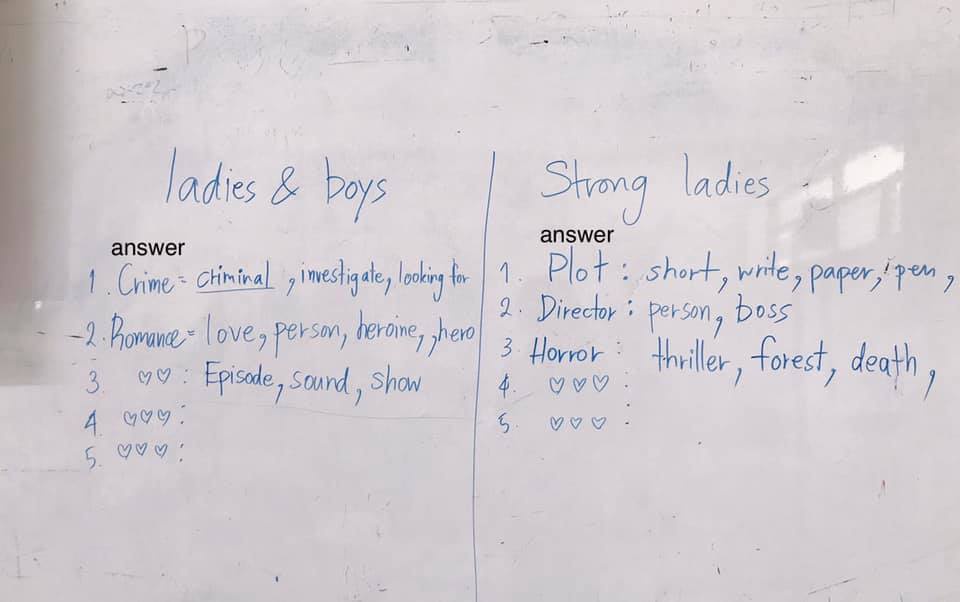 ladies & boys
answer
1. Crime = criminal, investigate, looking for
2. Romance = love, person, heroine,, hero
3. ♡♡ : Episode, sound, show
4. ♡♡♡ :
5. ♡♡♡ :
Strong ladies
answer
1. Plot : short, write, paper, pen,
2. Director : person, boss
3. Horror : thriller, forest, death,
4. ♡♡♡ :
5. ♡♡♡ :